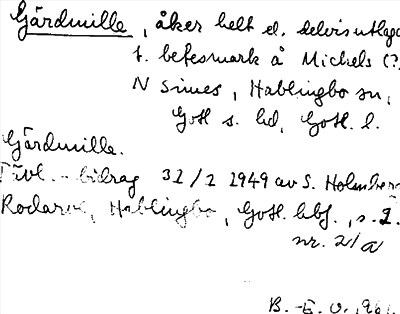 Gärdmille, åker helt el. delvis utlagd
t. betesmark å Michels (?)
N Simes, Hablingbo sn,
Gotl s. hd, Gotl. l.
Gärdmille.
Tävl.-bidrag 31/1 1949 av S. Holmberg
Rodarve, Hablingbo, Gotl. hbf., s. 2.
nr. 21a
B.-E. O. 1961